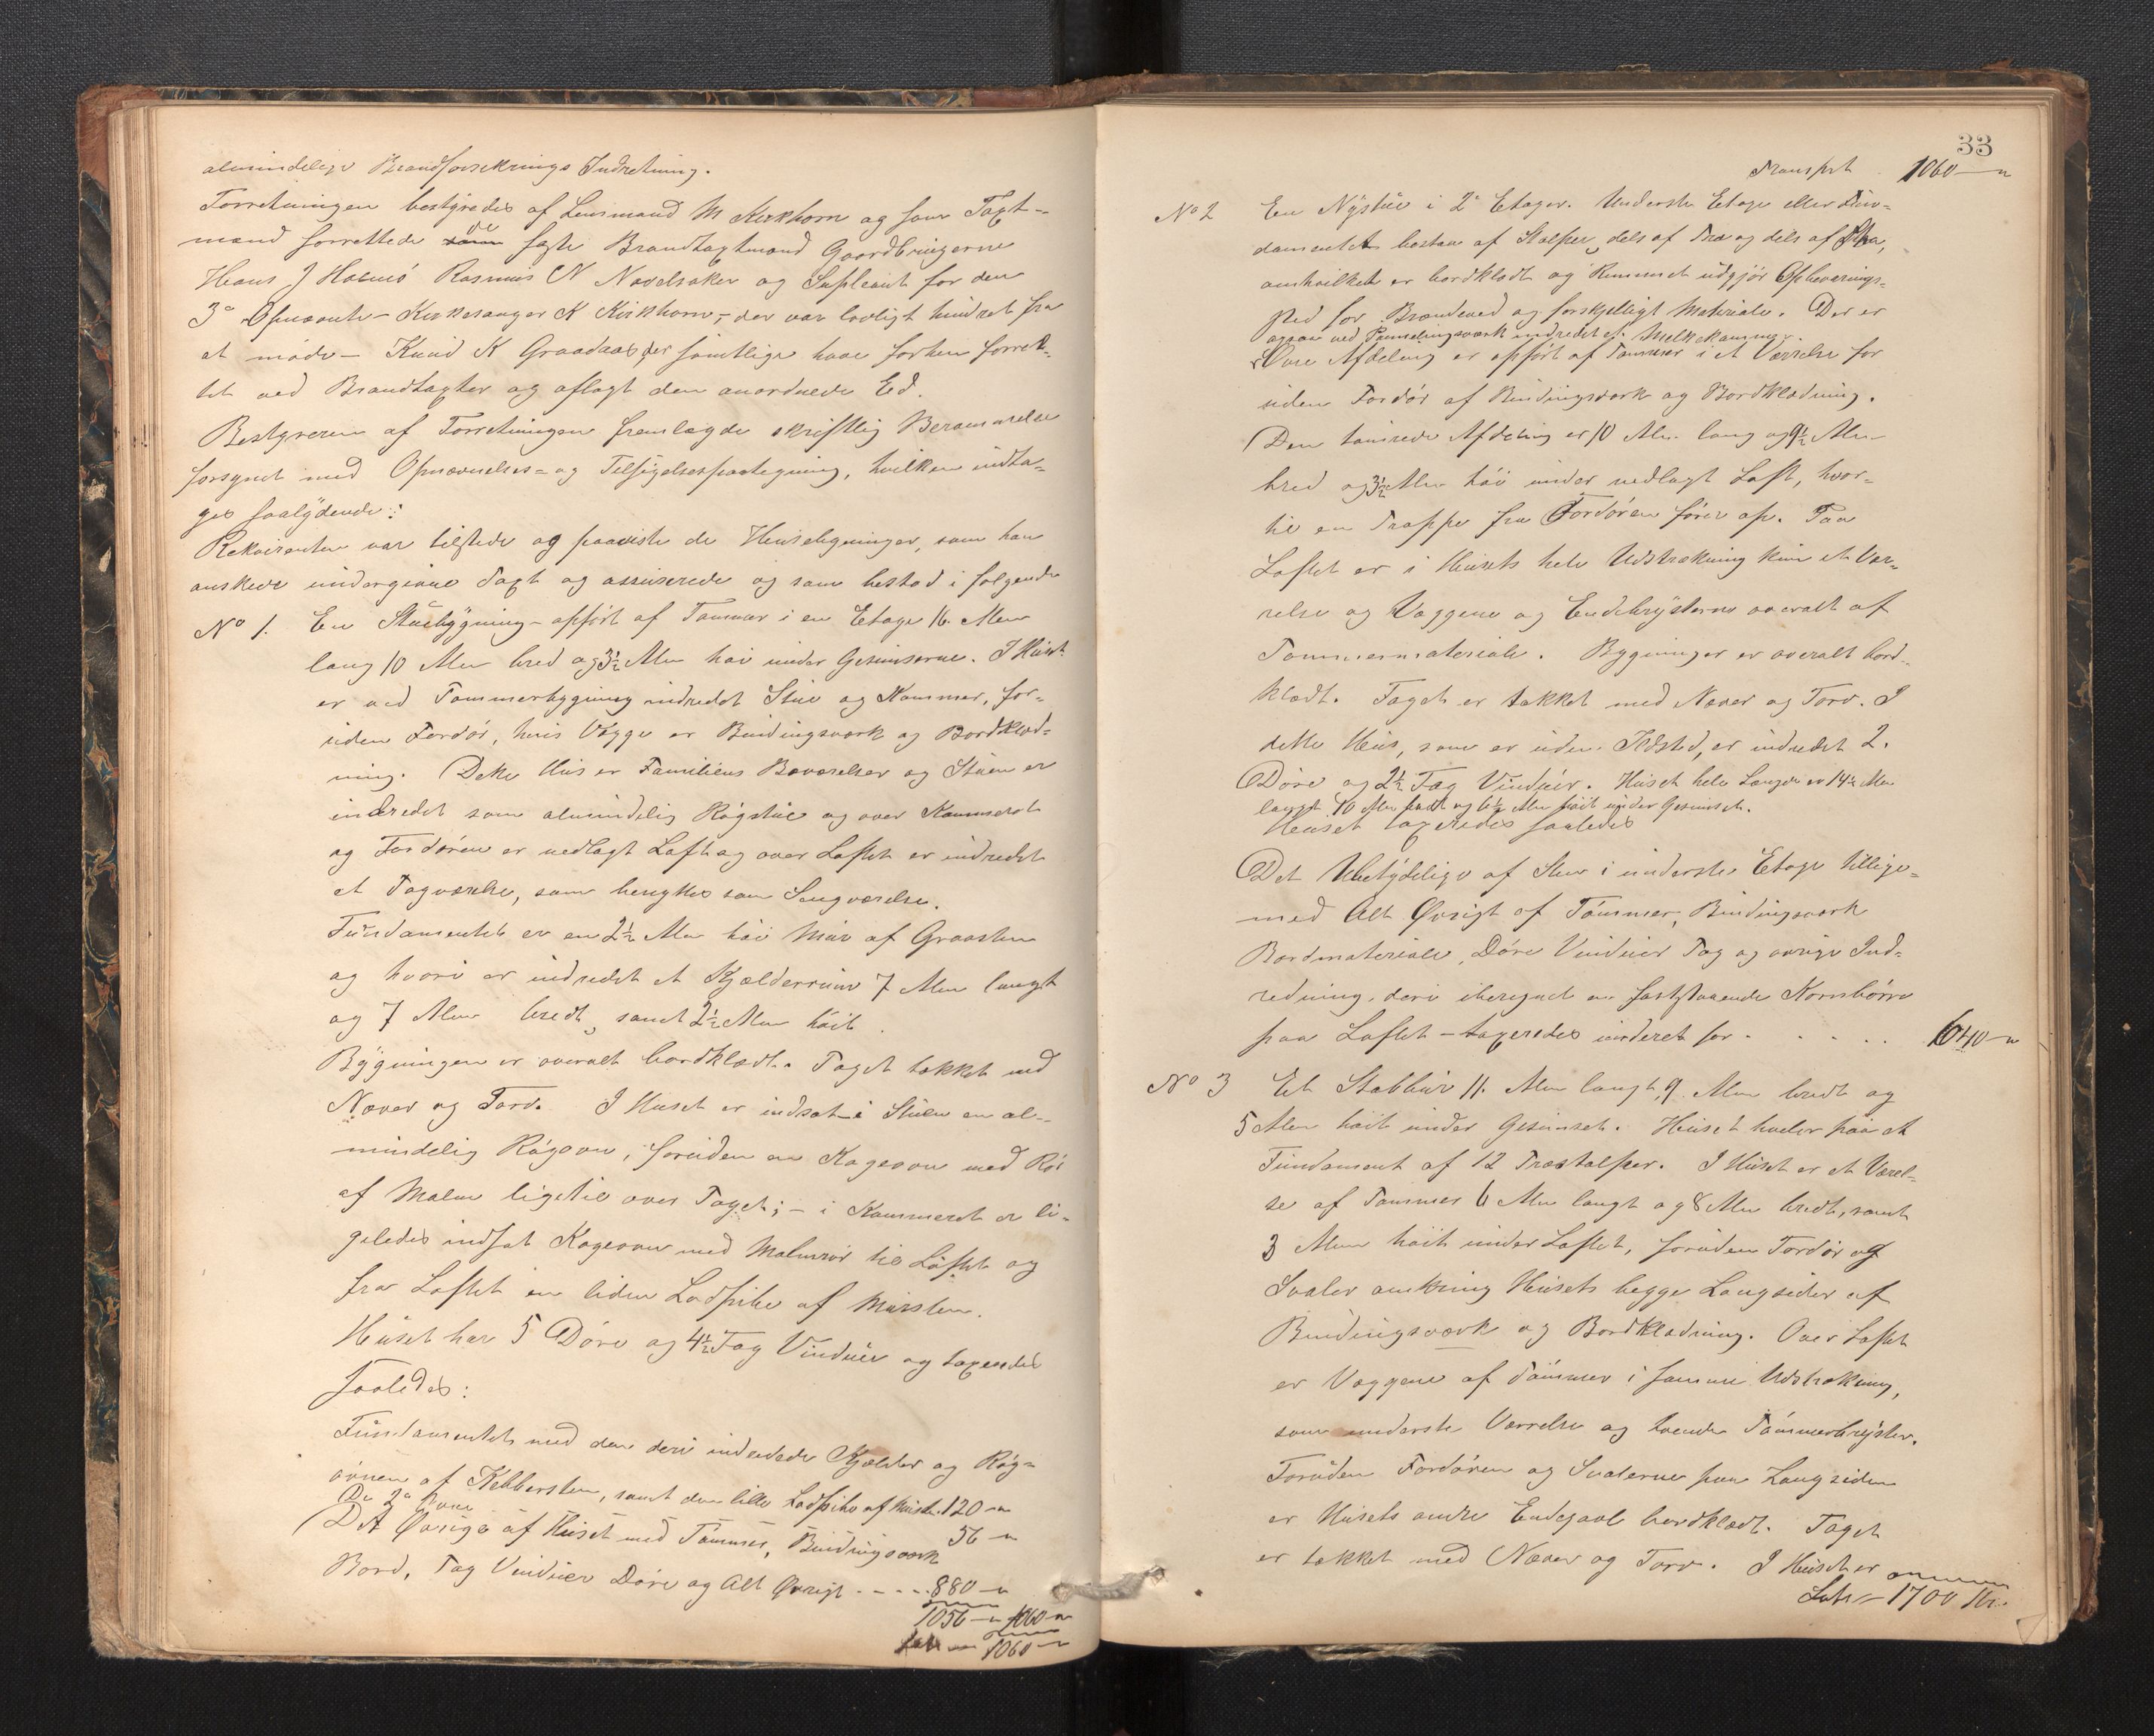 almindelige Brandforsikrings Indretning.
Forretningen bestyredes af Lensmand M Kirkhorn og som Taxt-
mænd forrettede de faste Brandtaxtmænd Gaardbrugerne
Hans J Rasmus N Navelsaker og Supleant for den
3die Opnævnte - Kirkesanger K Kirkhorn, - der var lovligt hindret fra
at møde - Knud K der samtlige have forhen forret-
tet ved Brandtaxter og aflagt den anordnede Ed.
Bestyreren af Forretningen fremlagde skriftlig Berammelse
forsynet med Opnævnelses- og Tilsigelsespaategning, hvilken indta-
ges saalydende:
Rekvirenten var tilstede og paaviste de Huusebygninger, som han
ønskede undergivne Taxt og assurerede og som bestod i følgende
No 1. En Stuebygning - opført af Tømmer i en Etage 16 Alen
lang 10 Alen bred og 3½ Alen høi under Gesimserne. I Huset
er ved Tømmerbygning indredet Stue og Kammer, for-
uden Fordør, hvis Vægge er Bindingsværk og Bordklæd-
ning. Dette Hus er Familiens Beværelser og Stuen er
indredet som almindelig Røgstue og over Kammeret
og Fordøren er nedlagt Loft og over Loftet er indredet
et Tagværelse, som benyttes som Sengværelse.
Fundamentet er en 2½ Alen høi Mur af Graasten
og hvori er indredet et Kjælderrum 7 Alen langt
og 7 Alen bredt, samt 2½ Alen høit.
Bygningen er overalt bordklædt. Taget tækket med
Næver og Torv. I Huset er indsat i Stuen en al-
mindelig Røgovn, foruden en Kogeovn med Rør
af Malm ligetil over Taget; - i Kammeret er li-
geledes indsat Kogeovn med Malmrør til Loftet og
fra Loftet en liden Lodpibe af Mursten.
Huset har 5 Døre og 4½ Fag Vinduer og taxeredes
saaledes:
Fundamentet med den deri indredede Kjælder og Røg-
ovnen af Klebbersten, samt den lille Lodpibe af Mursten 120 -
De 2de Ovne 56 -
Det Øvrige af Huset med Tømmer, Bindingsværk
Bord, Tag Vinduer Døre og Alt Øvrigt - - - - 880 -
1056 - 1060 -
Lat. 1060 -
33
Transport 1060 -
No 2 En Nystue i 2de Etager. Underste Etage eller Fun-
damentet bestaar af Stolper, dels af Træ og dels af
omhvilket er bordklædt og Rummet udgjør Opbevarings-
sted for Brændeved og forskjelligt Materiale. Der er
ogsaa ved Panelingsværk indredet et Melkekammer.
Øvre Afdeling er opført af Tømmer i et Værelse for
uden Fordør af Bindingsværk og Bordklædning.
Den tømrede Afdeling er 10 Alen lang og 9½ Alen
bred og 3½ Alen høi under nedlagt Loft, hvor-
til en Trappe fra Fordøren fører op. Paa
Loftet er i Husets hele Udstrækning kun et Væ-
relse og Væggene og Endebrysterne overalt af
Tømmermateriale. Bygningen er overalt bord-
klædt. Taget er tækket med Næver og Torv. I
dette Hus, som er uden Ildsted, er indredet 2
Døre og 2½ Fag Vinduer. Huset hele Længde er 14½ Alen
langt 10 Alen bredt og 6½ Alen høit under Gesimset.
Huset taxeredes saaledes
Det Ubetydelige af Stene i underste Etage tillige-
med Alt Øvrigt af Tømmer, Bindingsværk
Bordmateriale, Døre Vinduer Tag og øvrige Ind-
redning, deri iberegnet en fastgaaende Kornbørre
paa Loftet - taxeredes vurderet for - - - - - 640 -
No 3 Et Stabbur 11 Alen langt, 9 Alen bredt og
5 Alen høit under Gesimset. Huset hviler paa et
Fundament af 12 Træstolper. I Huset er et Værel-
se af Tømmer 6 Alen langt og 8 Alen bredt, samt
3 Alen høit under Loftet, foruden Fordør og
Svaler omkring Husets begge Langsider af
Bindingsværk og Bordklædning. Over Loftet
er Væggene af Tømmer i samme Udstrækning,
som underste Værelse og tvende Tømmerbryster.
Foruden Fordøren og Svalerne paa Langsiden
er Husets andre Endegavl bordklædt. Taget
er tækket med Næver og Torv. I Huset er
Lats - 1700 Kr.